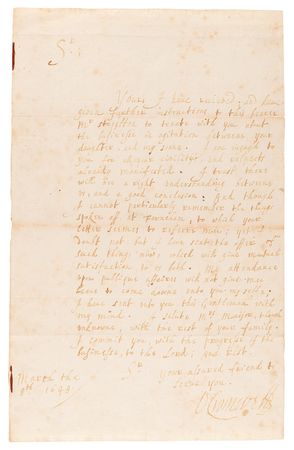 Sr.
Yours I have received, and have
given further instructions to this bearer
Mr Stapleton to treate with you about
the businesse in agitation betweene your
daughter and my sonn. I am ingaged to
you for all your civilities and respects
already manifested. I trust there
will bee a right understanding betweene
us, and a good conclusion. And though
I cannot particularly remember the things
spoken off at Farnham, to which your
letter seemes to referr mee; yet I
doubt not but I have sent the offer of
such things now, which will give mutual
satisfaction to us both. My attendance
upon publique affaires will not give mee
leave to come downe unto you my selfe,
I have sent unto you this Gentleman with
my mind. I salute Mrs Maijor, though
unknowne, with the rest of your familie.
I commit you, with the progresse of the
businesse, to the Lord; and rest
Sr.
your assured friend to
serve you.
March the
8th 1648
O Cromwell